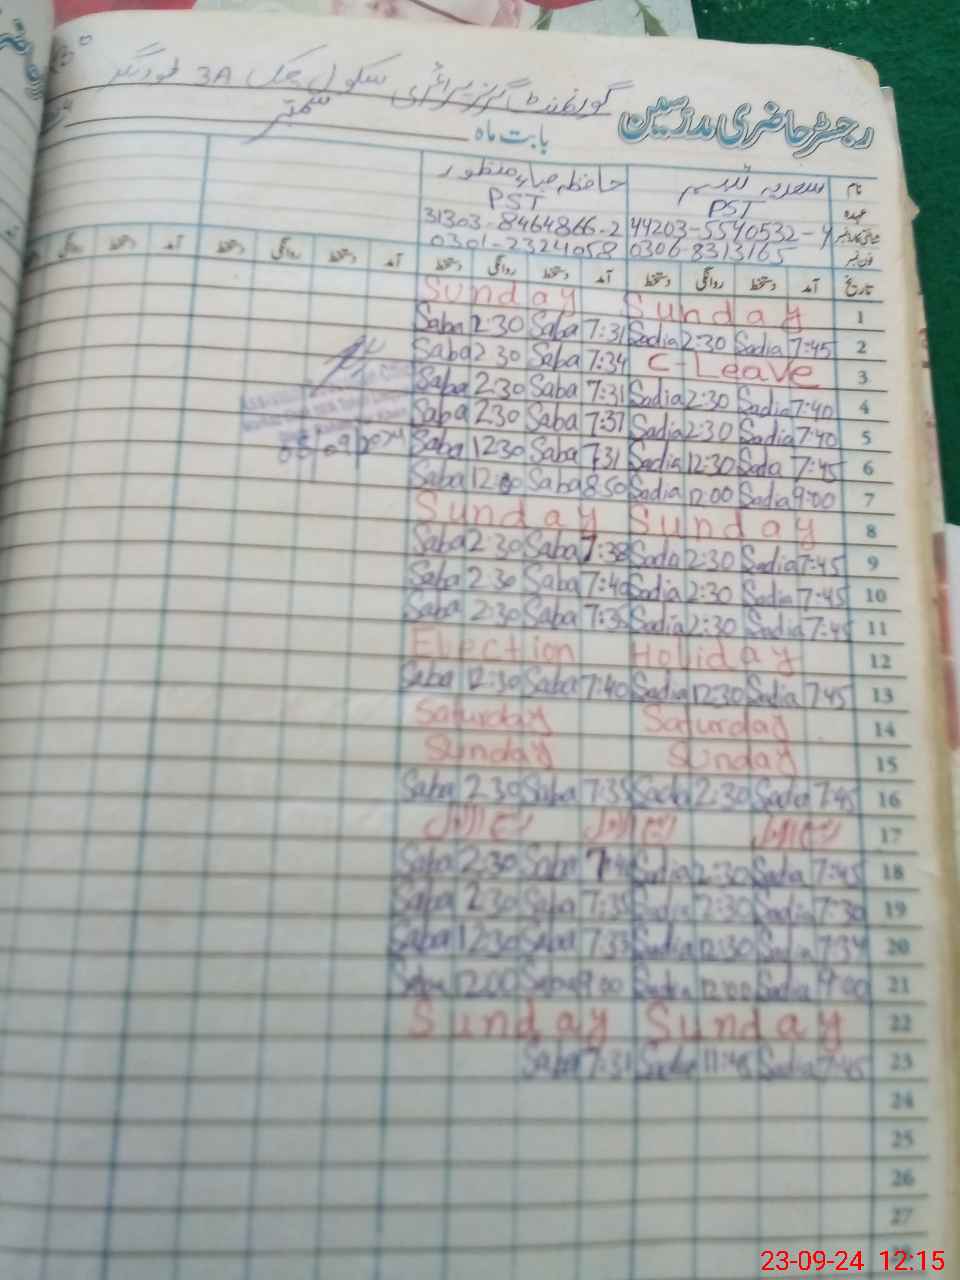 گورنمنٹ گرلز پرائمری سکول چک 3A
رجسٹر حاضری مدرسین
بابت ماہ ستمبر
نام سعدیہ تبسم حافظہ صباء منظور
عہدہ PST PST
44203-5540532-4 31303-8464866-2
فون نمبر 0306 8313165 0301-2324058
تاریخ آمد دستخط روانگی دستخط آمد دستخط روانگی دستخط آمد دستخط روانگی دستخط آمد دستخط روانگی دستخط
Sunday Sunday 1
Saba 2:30 Saba 7:31 Sadia 2:30 Sadia 7:45 2
Saba 2 30 Saba 7:34 C-Leave 3
Saba 2:30 Saba 7:31 Sadia 2:30 Sadia 7:40 4
Saba 2:30 Saba 7:37 Sadia 2:30 Sadia 7:40 5
Saba 12:30 Saba 7:31 Sadia 12:30 Sada 7:45 6
Saba 12:00 Saba 8:50 Sadia 12:00 Sadia 9:00 7
Sunday Sunday 8
Saba 2:30 Saba 7:38 Sada 2:30 Sadia 7:45 9
Saba 2:30 Saba 7:40 Sadia 2:30 Sadia 7:45 10
Saba 2:30 Saba 7:35 Sadia 2:30 Sadia 7:45 11
Election Holiday 12
Saba 12:30 Saba 7:40 Sadia 12:30 Sadia 7:45 13
Saturday Saturday 14
Sunday Sunday 15
Saba 2:30 Saba 7:35 Sada 2:30 Sada 7:45 16
ربیع الاول ربیع الاول ربیع الاول 17
Saba 2:30 Saba Sadia 2:30 Sadia 7:45 18
Saba 2:30 Saba 7:35 Sadia 2:30 Sadia 7:30 19
Saba 12:30 Saba 7:33 Sadia 12:30 Sadia 7:34 20
Saba 12:00 Saba 9:00 Sadia 12:00 Sadia 9:00 21
Sunday Sunday 22
Saba 7:31 Sadia 11:45 Sadia 7:45 23
24
25
26
27
23-09-24 12:15